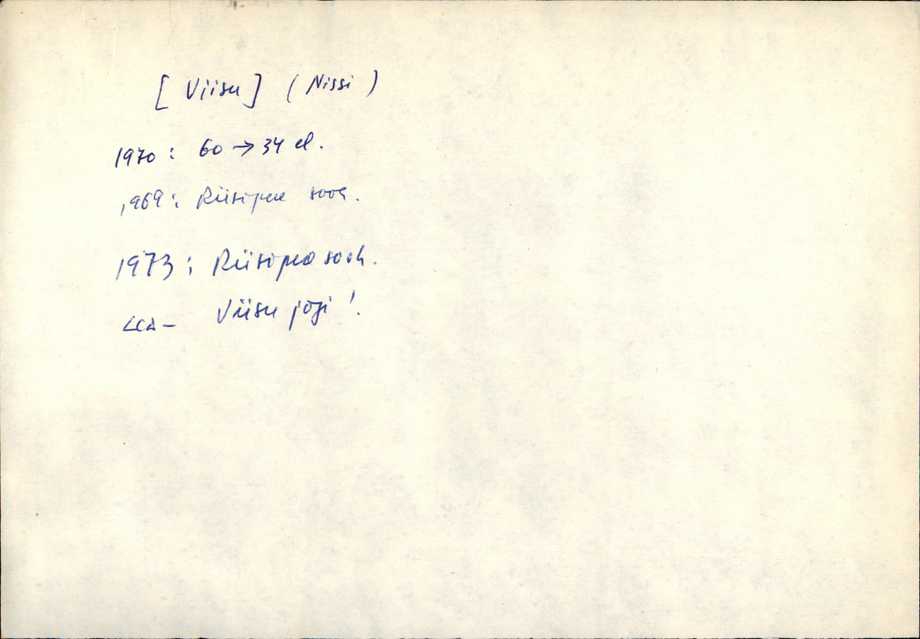 [Viisu] (Nissi)
1970: 60 → 34 el.
1969: Riisipere sovh.
1973: Riisipere sovh.
Viisu jõgi!